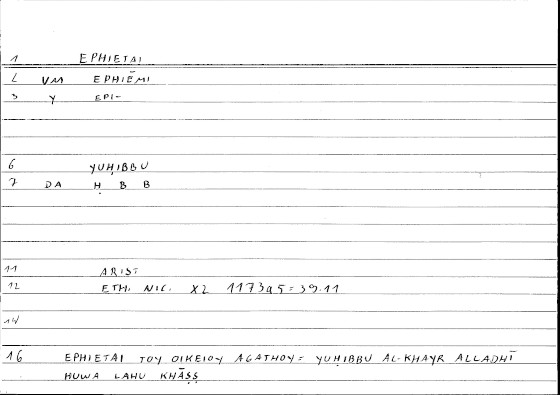 1 EPHIETAI
2 VM EPHIĒMI
3 Y EPI-
6 YUḤIBBU
7 DA Ḥ B B
11 ARIST.
12 ETH. NIC. X2 1173a5 = 39.11
14
16 EPHIETAI TOY OIKEIOY AGATHOY = YUḤIBBU AL-KHAYR ALLADHĪ
HUWA LAHU KHĀṢṢ